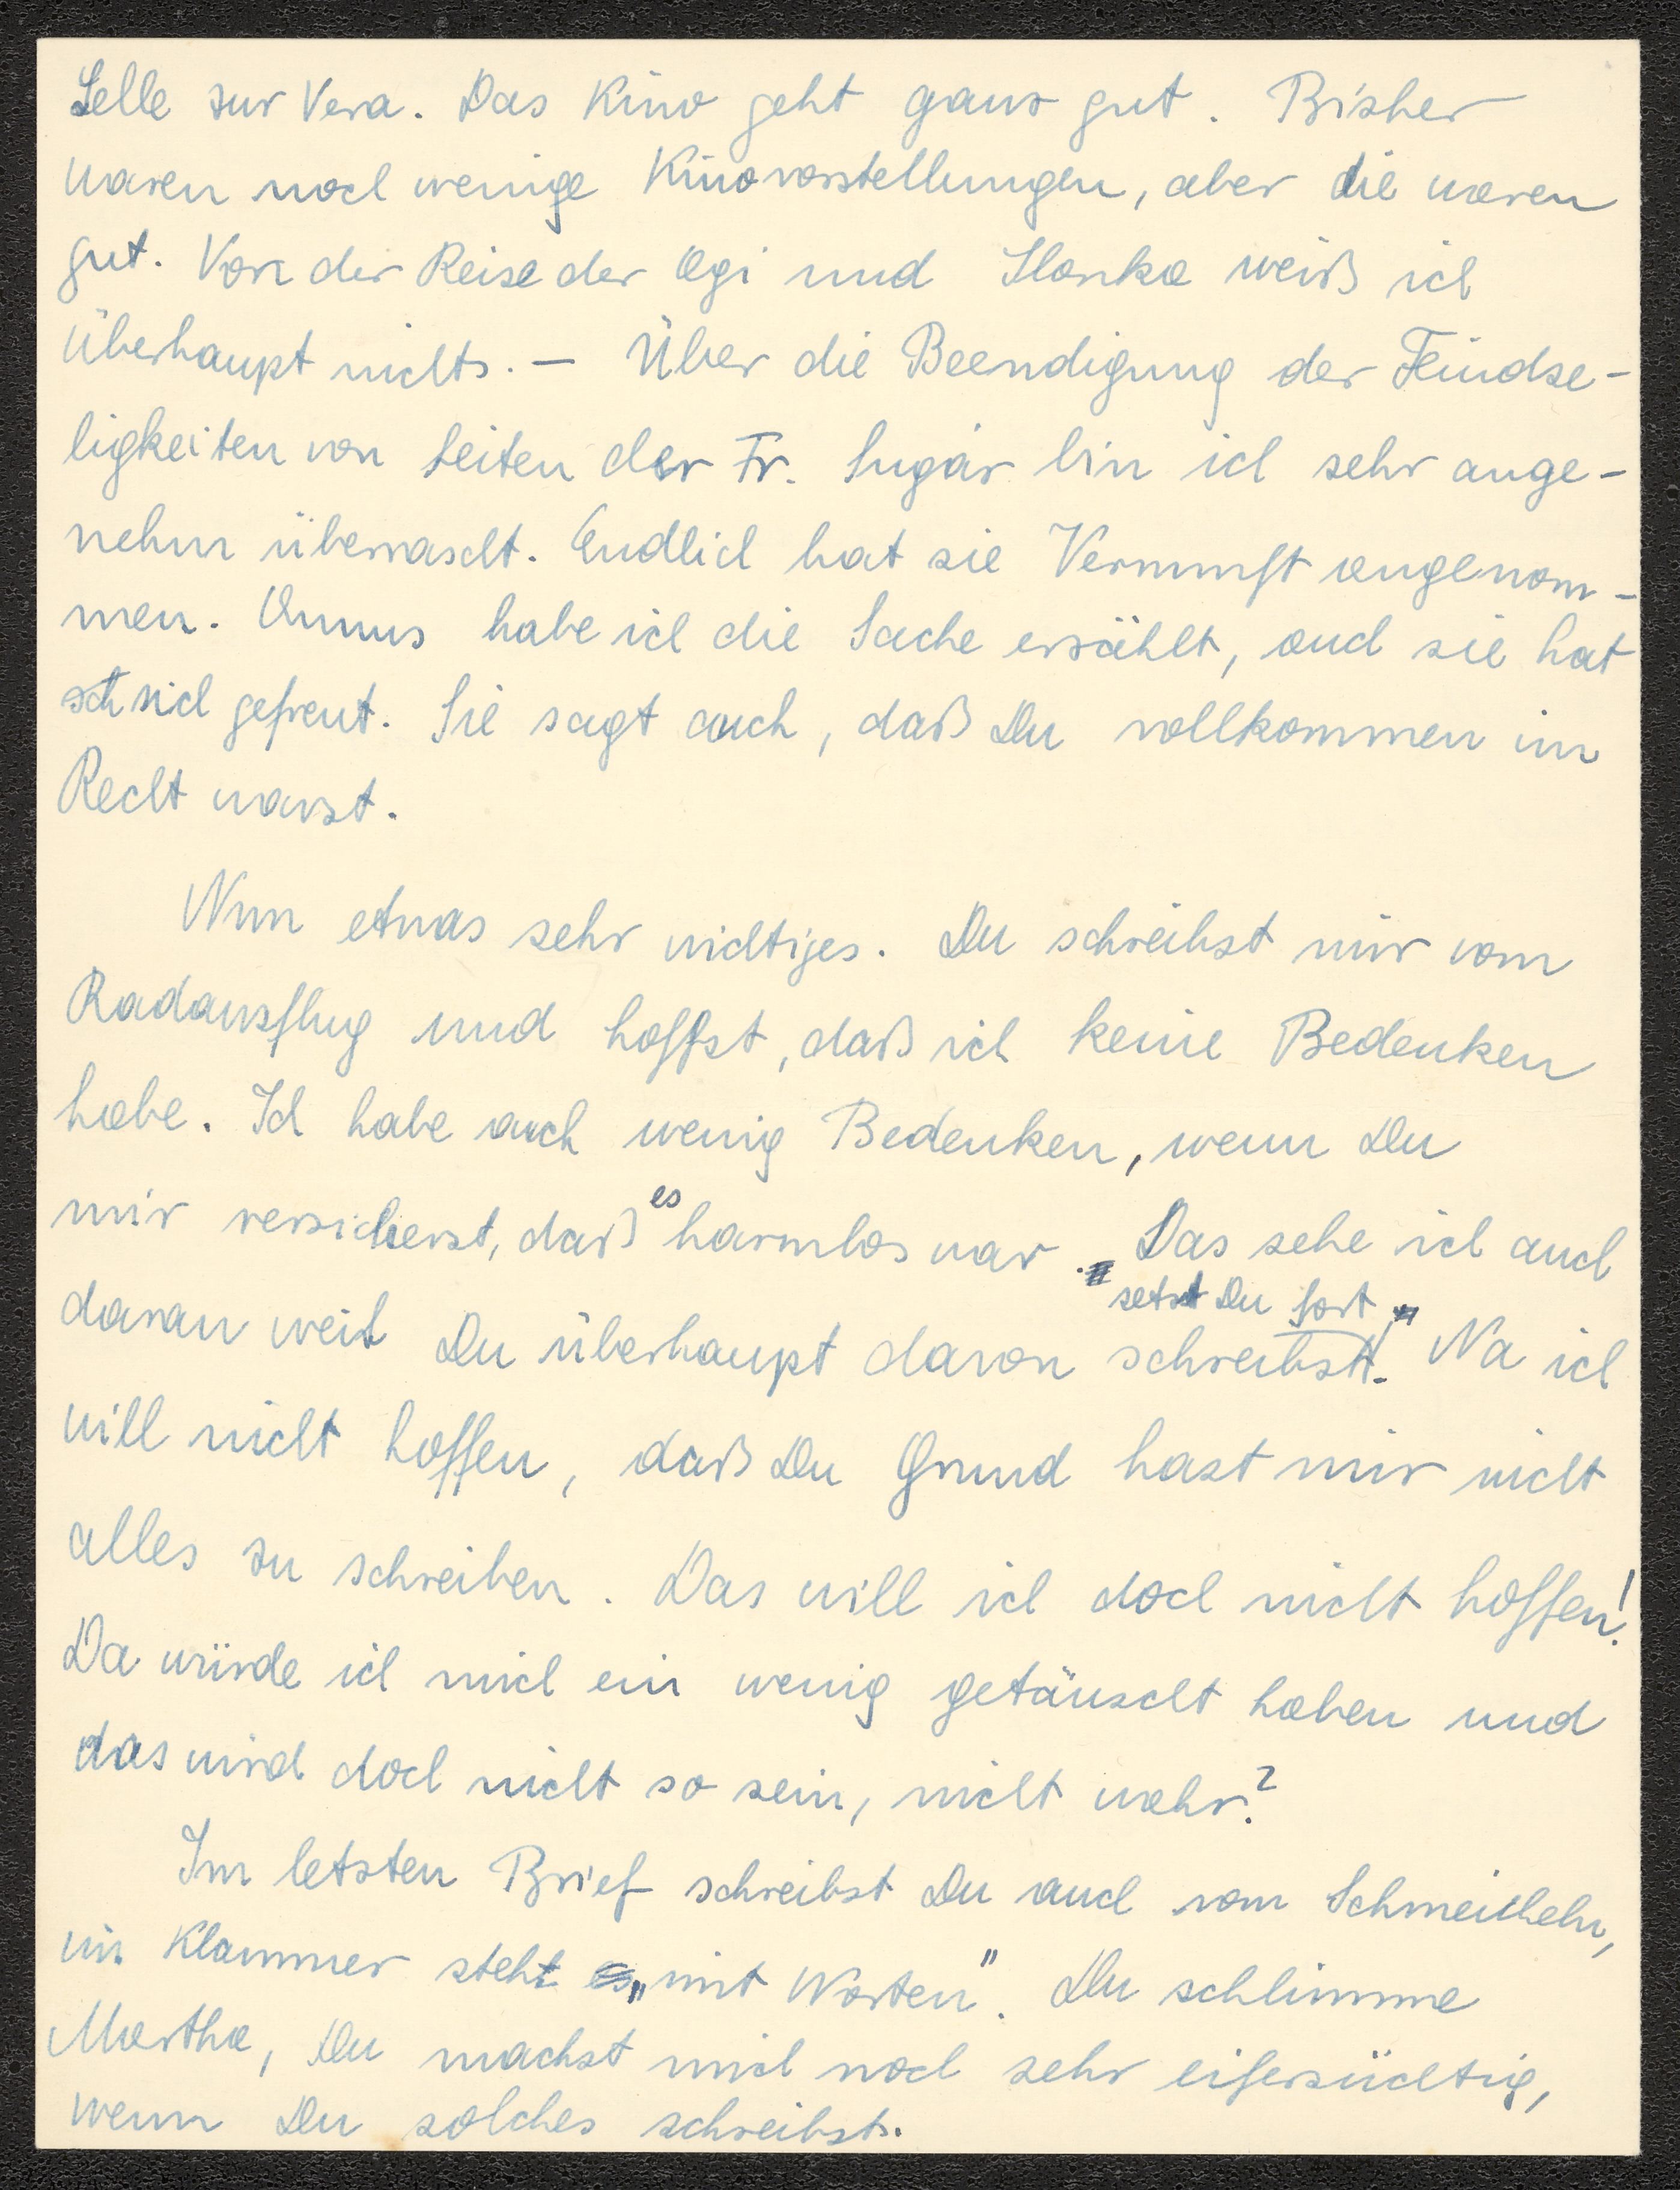 Selle zur Vera. Das Kino geht ganz gut. Bisher
waren noch wenige Kinovorstellungen, aber die waren
gut. Von der Reise der Ogi und Ilonka weiß ich
überhaupt nichts. — Über die Beendigung der Feindse-
ligkeiten von Seiten der Fr. Sugár bin ich sehr ange-
nehm überrascht. Endlich hat sie Vernunft angenom-
men. Omus habe ich die Sache erzählt, und sie hat
sich gefreut. Sie sagt auch, daß Du vollkommen im
Recht warst.
Nun etwas sehr wichtiges. Du schreibst mir vom
Radausflug und hoffst, daß ich keine Bedenken
habe. Ich habe auch wenig Bedenken, wenn Du
mir versicherst, daß es harmlos war. „Das sehe ich auch
daran weil Du überhaupt davon schreibst." setzt Du fort. Na ich
will nicht hoffen, daß Du Grund hast mir nicht
alles zu schreiben. Das will ich doch nicht hoffen!
Da würde ich mich ein wenig getäuscht haben und
das wird doch nicht so sein, nicht wahr?
Im letzten Brief schreibst Du auch vom Schmeicheln,
in Klammer steht „mit Worten". Du schlimme
Martha, Du machst mich noch sehr eifersüchtig,
wenn Du solches schreibst.